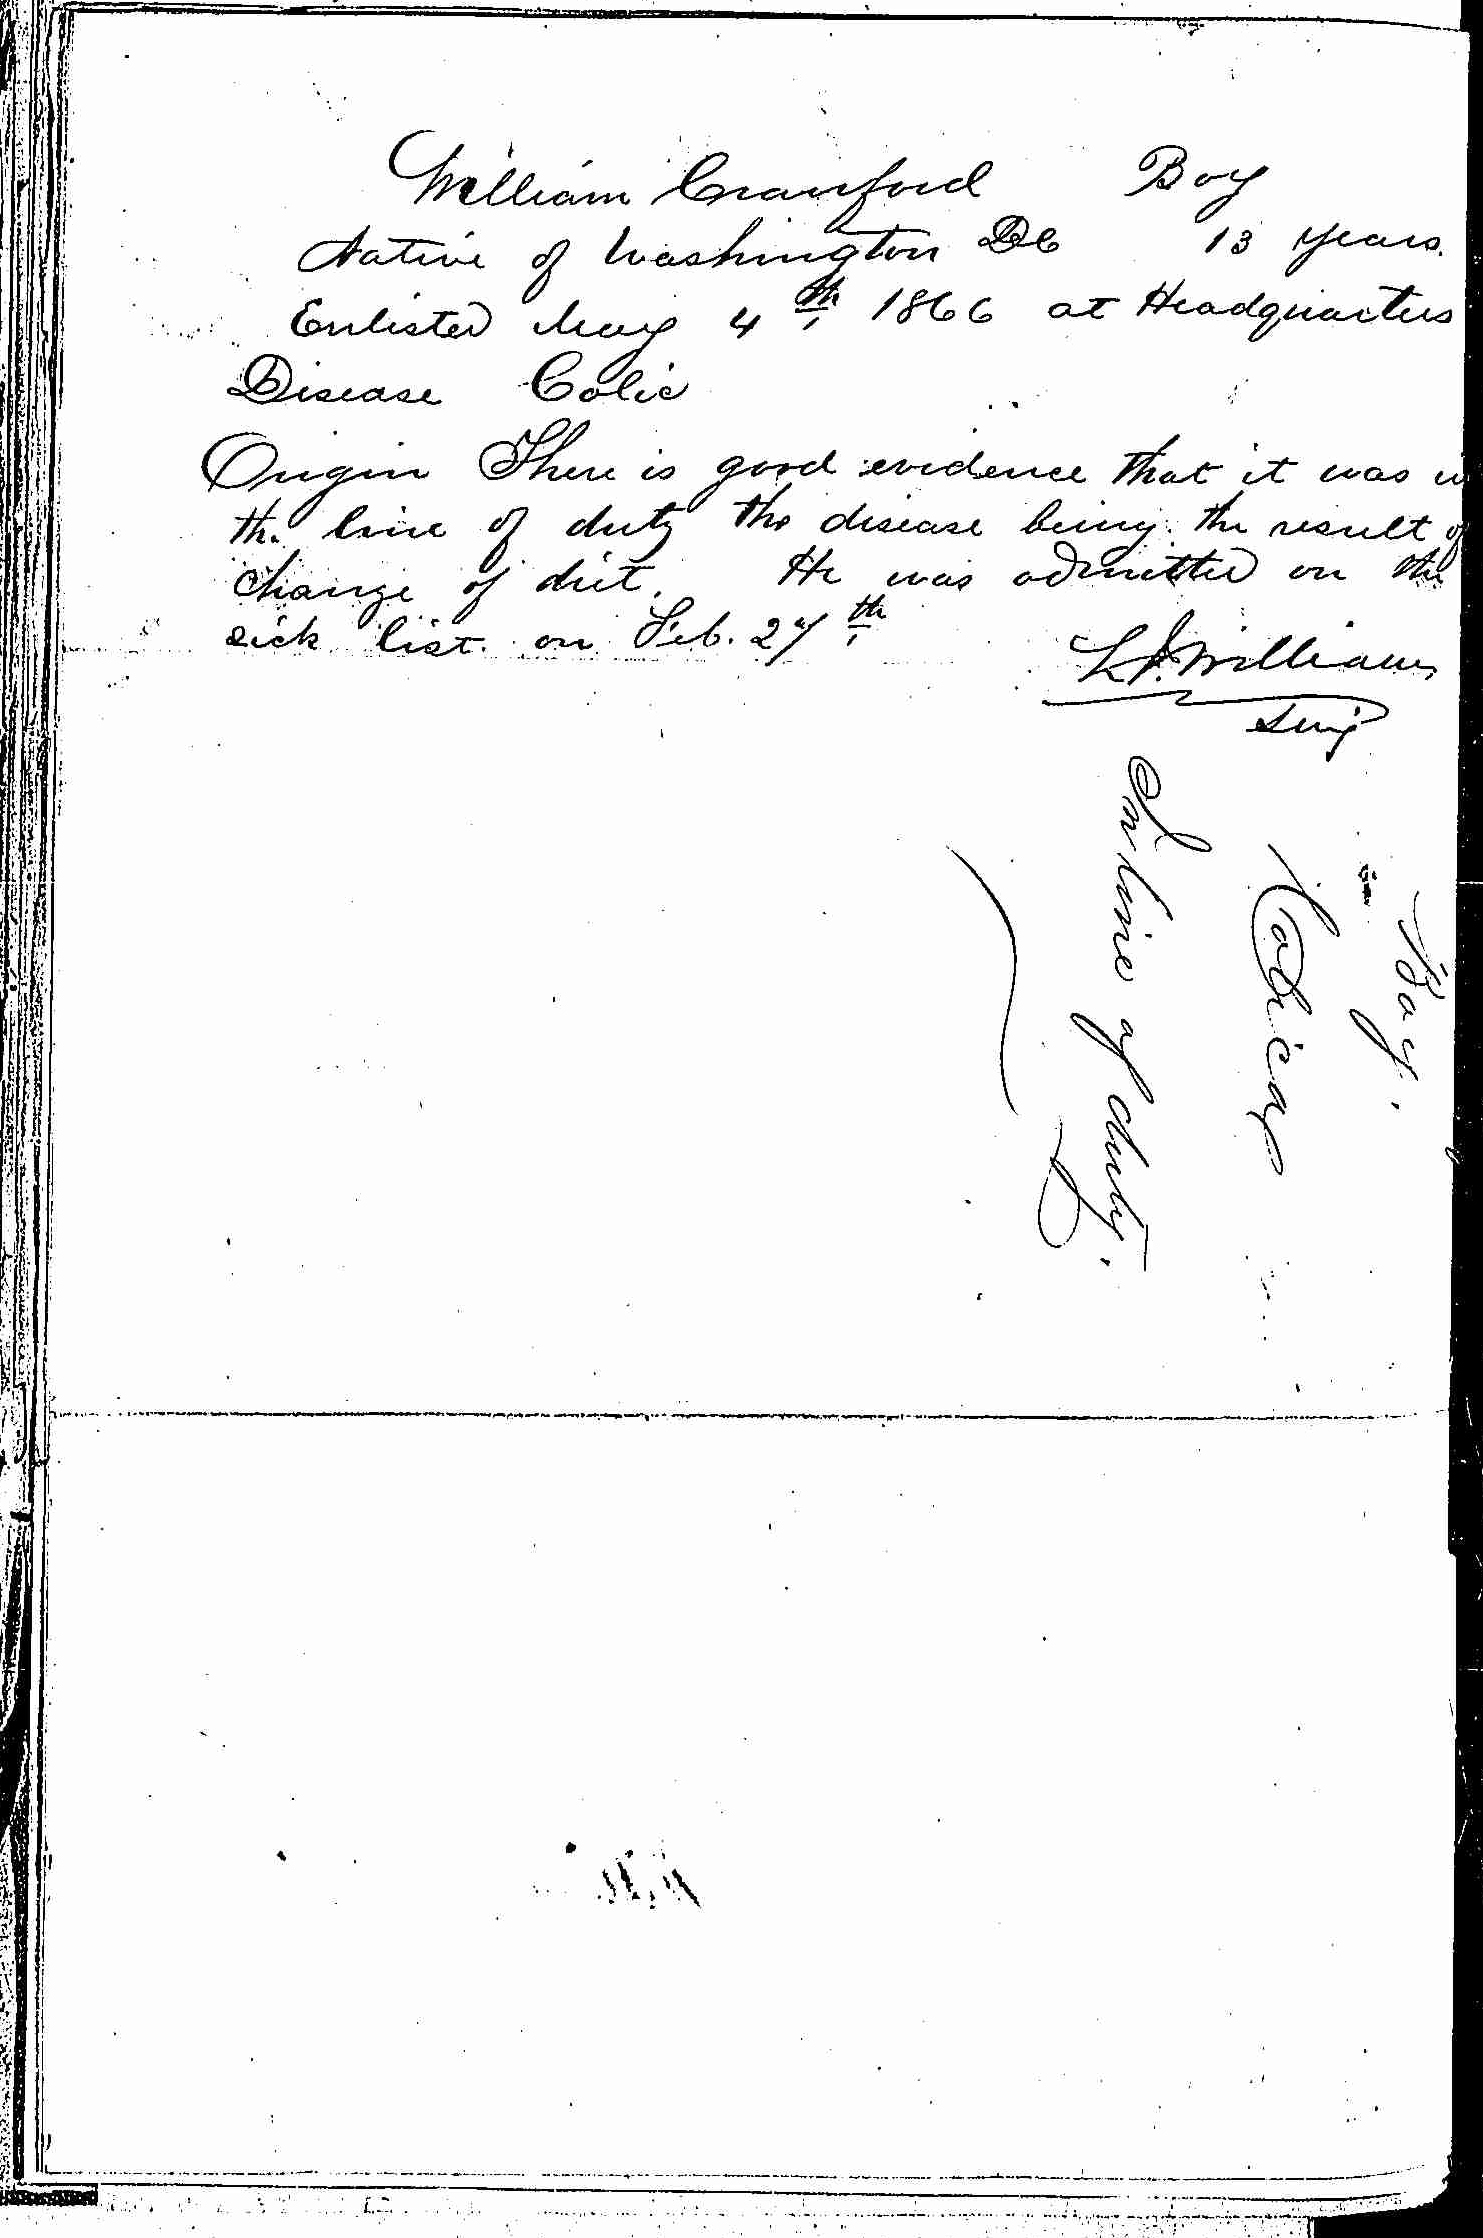 William Crawford Boy
Native of Washington DC 13 years.
Enlisted May 4th 1866 at Headquarters
Disease Colic
Origin There is good evidence that it was
the line of duty the disease being the result of
change of diet. He was admitted on the
sick list on Feb. 27th
Williams
Surg
Boy.
Colica
In line of duty.